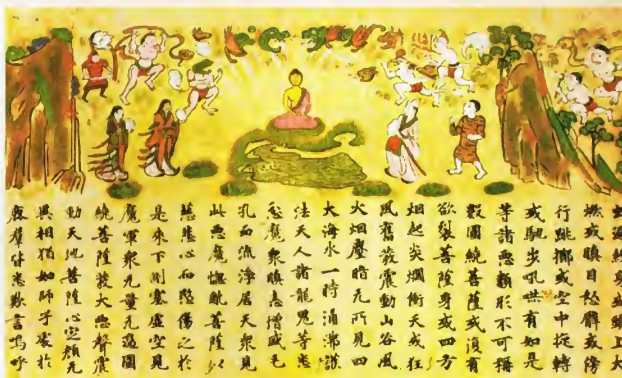 或頭上火
燃或瞋目努臂或傍
行跳擲或空中旋轉
或馳步吼有如是
等諸惡類形不可稱
數圍繞菩薩或復有
欲裂菩薩身或四方
烟起炎爓衝天或狂
風奮發震動山谷風
火烟塵暗无所見四
大海水一時涌沸護
法天人諸龍鬼等悉
忿魔衆瞋恚增盛毛
孔血流淨居天衆見
此惡魔惱乱菩薩以
慈悲心而愍傷之於
是來下側塞虛空見
魔軍衆无量无邊圍
繞菩薩發大惡聲震
動天地菩薩心定顏无
異相猶如師子處於
鹿群皆悉歎言嗚呼